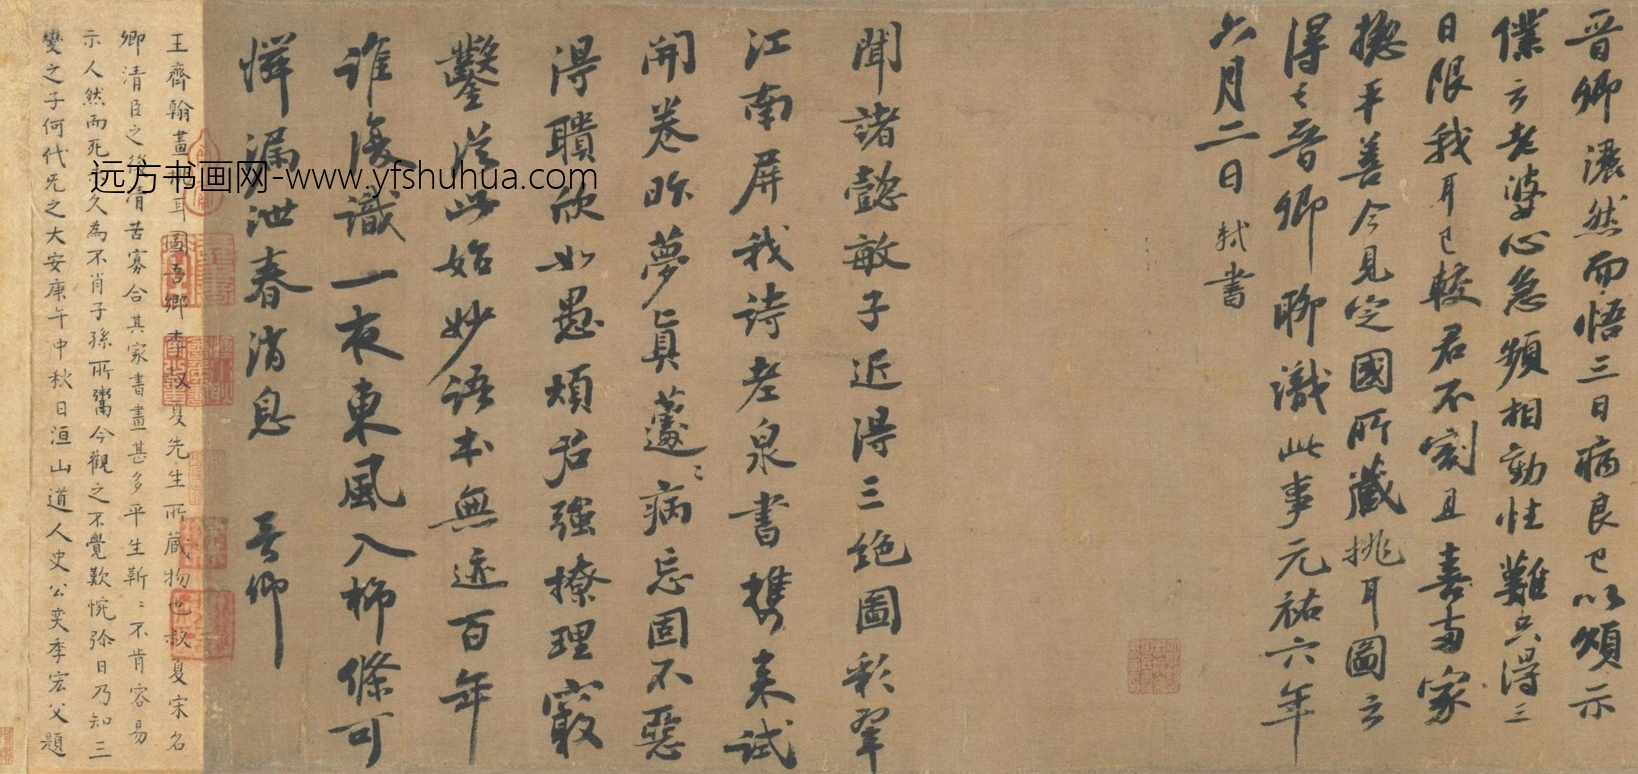 晉卿洒然而悟三日病良已以頌示
僕云老婆心急頻相勸性難只得三
日限我耳已較君不割且喜兩家
揔平善今見定國所藏挑耳圖云
得之晉卿聊識此事元祐六年
六月二日軾書
聞諸懿敏子近得三絶圖彩翠
江南屏我詩老泉書攜來試
開卷昨夢真蘧蘧病忘固不惡
得聵欣如愚煩君強撩理竅
鑿從此始妙語本無迹百年
誰復識一夜東風入柳條可
憐漏泄春消息 晉卿
王齊翰畫挑耳圖吾鄉李叔夏先生所藏物也叔夏宋名
卿清臣之後清苦寡合其家書畫甚多平生靳靳不肯容易
示人然而死未久為不肖子孫所鬻今觀之不覺歎惋弥日乃知三
變之子何代无之大安庚午中秋日洹山道人史公奕季宏父題
远方书画网-www.yfshuhua.com